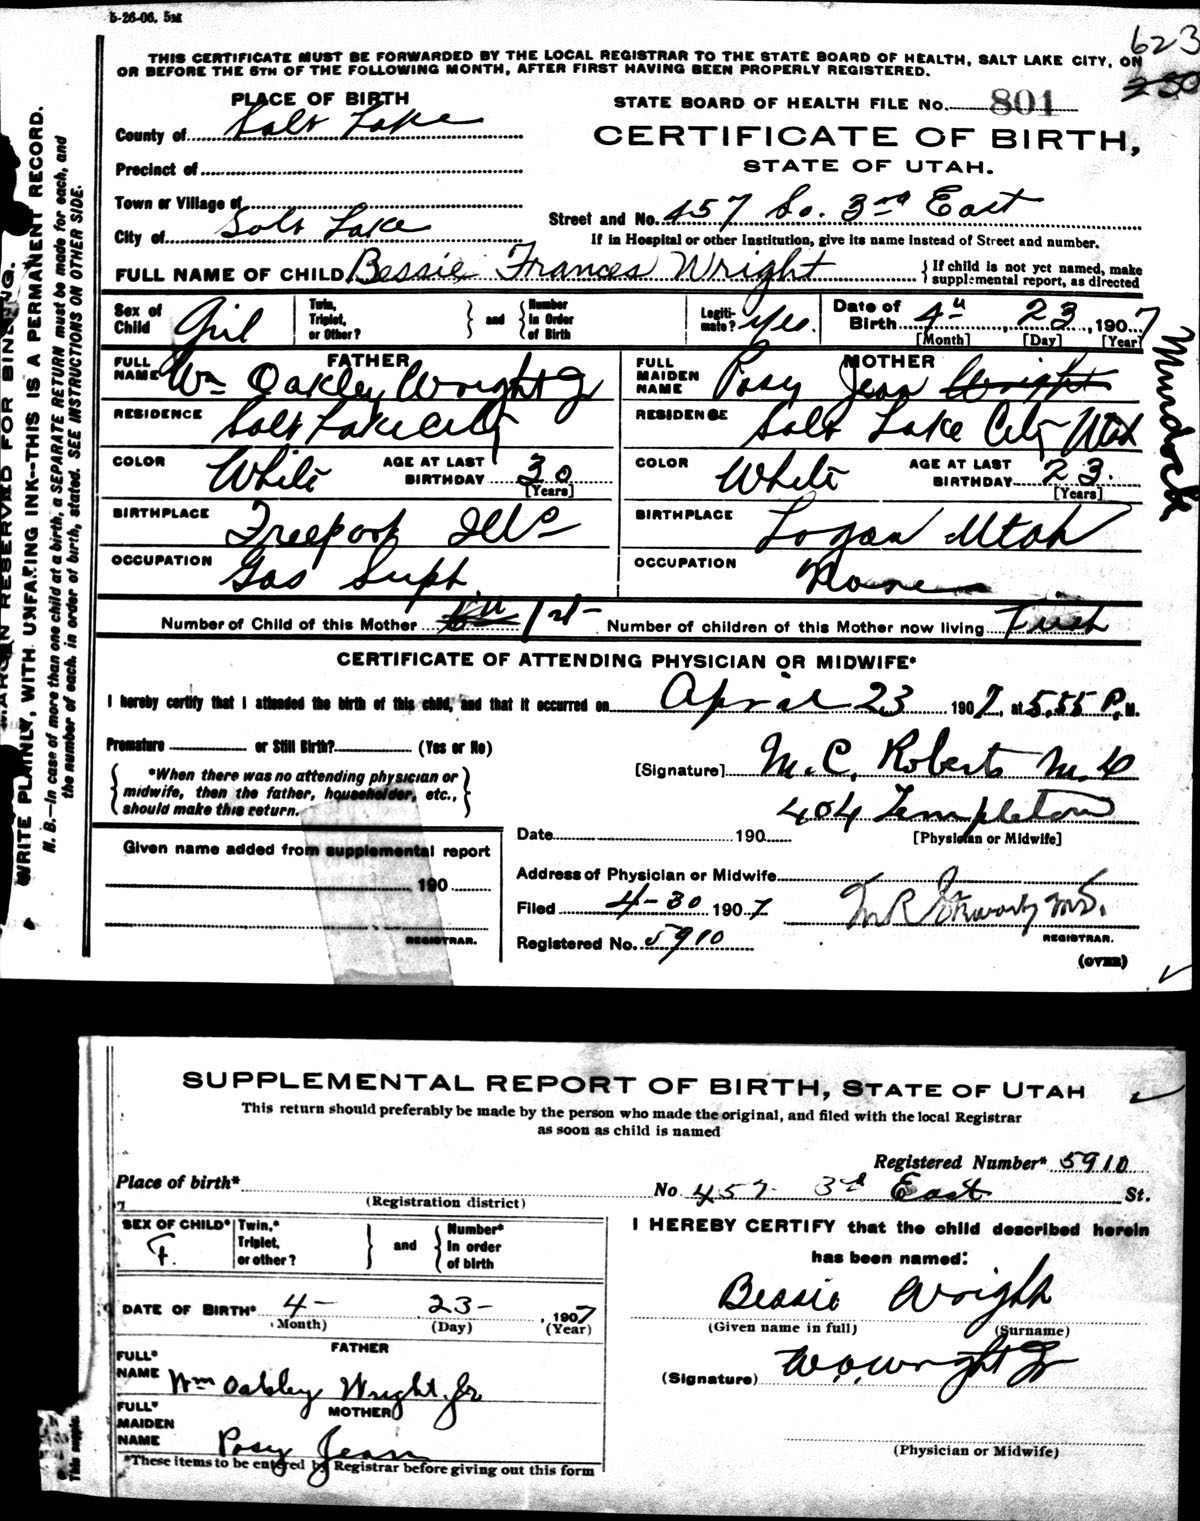 5-26-06. 5M
THIS CERTIFICATE MUST BE FORWARDED BY THE LOCAL REGISTRAR TO THE STATE BOARD OF HEALTH, SALT LAKE CITY, ON
OR BEFORE THE 5TH OF THE FOLLOWING MONTH, AFTER FIRST HAVING BEEN PROPERLY REGISTERED.
623
250
PLACE OF BIRTH
STATE BOARD OF HEALTH FILE No. 801
County of Salt Lake
CERTIFICATE OF BIRTH,
STATE OF UTAH.
Precinct of
Town or Village of
Street and No. 457 So. 3rd East
City of Salt Lake
If in Hospital or other Institution, give its name instead of Street and number.
FULL NAME OF CHILD Bessie Frances Wright
{If child is not yet named, make
supplemental report, as directed
Sex of Child Girl
Twin, Triplet, or Other?
} and {
Number In Order of Birth
Legiti-mate? Yes.
Date of Birth 4th, 23, 1907
[Month] [Day] [Year]
FATHER
FULL NAME Wm Oakley Wright Jr
MOTHER
FULL MAIDEN NAME Posy Jean Wright
Murdock
RESIDENCE Salt Lake City
RESIDENCE Salt Lake City Utah
COLOR White
AGE AT LAST BIRTHDAY 30 [Years]
COLOR White
AGE AT LAST BIRTHDAY 23. [Years]
BIRTHPLACE Freeport Ills
BIRTHPLACE Logan Utah
OCCUPATION Gas Supt.
OCCUPATION None
Number of Child of this Mother 1st
Number of children of this Mother now living First
CERTIFICATE OF ATTENDING PHYSICIAN OR MIDWIFE*
I hereby certify that I attended the birth of this child, and that it occurred on April 23 1907, at 5.55 P.M.
Premature or Still Birth? (Yes or No)
[Signature] M. C. Roberts M.D
{ *When there was no attending physician or
midwife, then the father, householder, etc.,
should make this return. }
404 Templeton
Date 190
[Physician or Midwife]
Given name added from supplemental report
190
REGISTRAR.
Address of Physician or Midwife
Filed 4-30 1907
Registered No. 5910
REGISTRAR.
(OVER)
MARGIN RESERVED FOR BINDING.
WRITE PLAINLY, WITH UNFADING INK--THIS IS A PERMANENT RECORD.
N. B.—In case of more than one child at a birth, a SEPARATE RETURN must be made for each, and
the number of each, in order of birth, stated. SEE INSTRUCTIONS ON OTHER SIDE.
SUPPLEMENTAL REPORT OF BIRTH, STATE OF UTAH
This return should preferably be made by the person who made the original, and filed with the local Registrar
as soon as child is named
Registered Number* 5910
Place of birth*
No 457 3rd East St.
(Registration district)
SEX OF CHILD* F.
Twin,* Triplet, or other?
} and {
Number* In order of birth
I HEREBY CERTIFY that the child described herein
has been named:
DATE OF BIRTH* 4- 23- , 1907
(Month) (Day) (Year)
Bessie Wright
(Given name in full) (Surname)
FATHER
FULL* NAME Wm Oakley Wright Jr
(Signature) W.O. Wright Jr
MOTHER
FULL* MAIDEN NAME Posy Jean
(Physician or Midwife)
*These items to be entered by Registrar before giving out this form
This supple